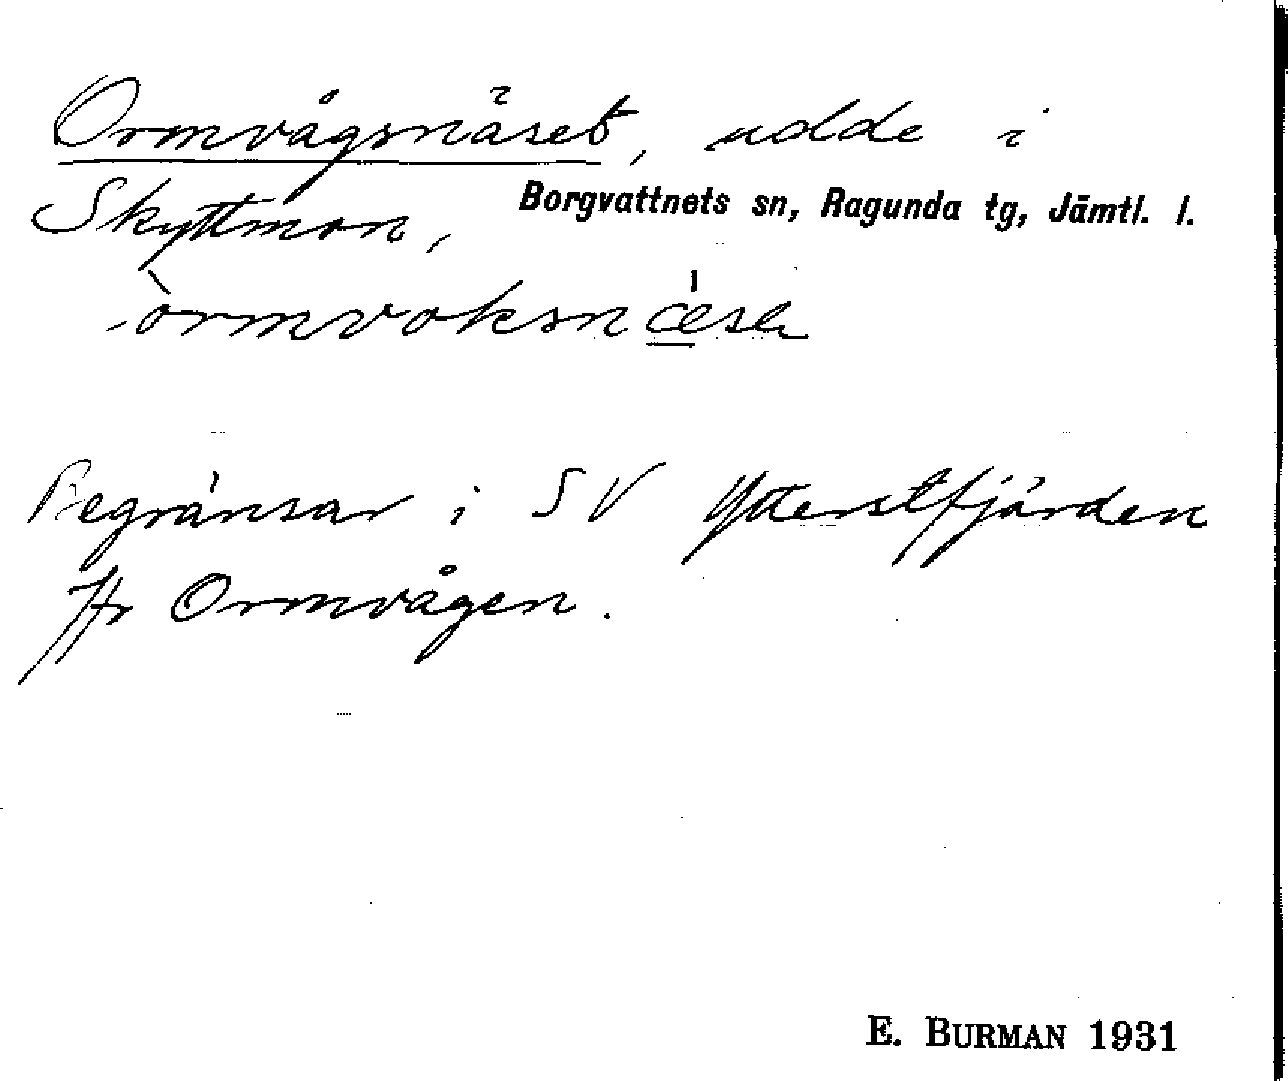 Ormvågsnäset, udde i
Skyttmon, Borgvattnets sn, Ragunda tg, Jämtl. l.
Begränsar i SV Ytterstfjärden
Jfr Ormvågen.
E. BURMAN 1931